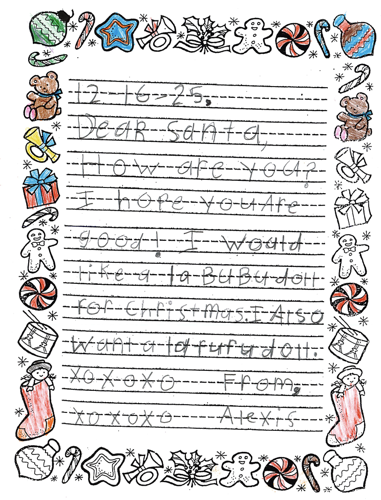 12-16-25.
Dear Santa,
How are you?
I hope you Are
good! I would
like a laBuBu doll
for Christmas. I Also
want a lafufu doll.
xoxoxo From,
xoxoxo Alexis